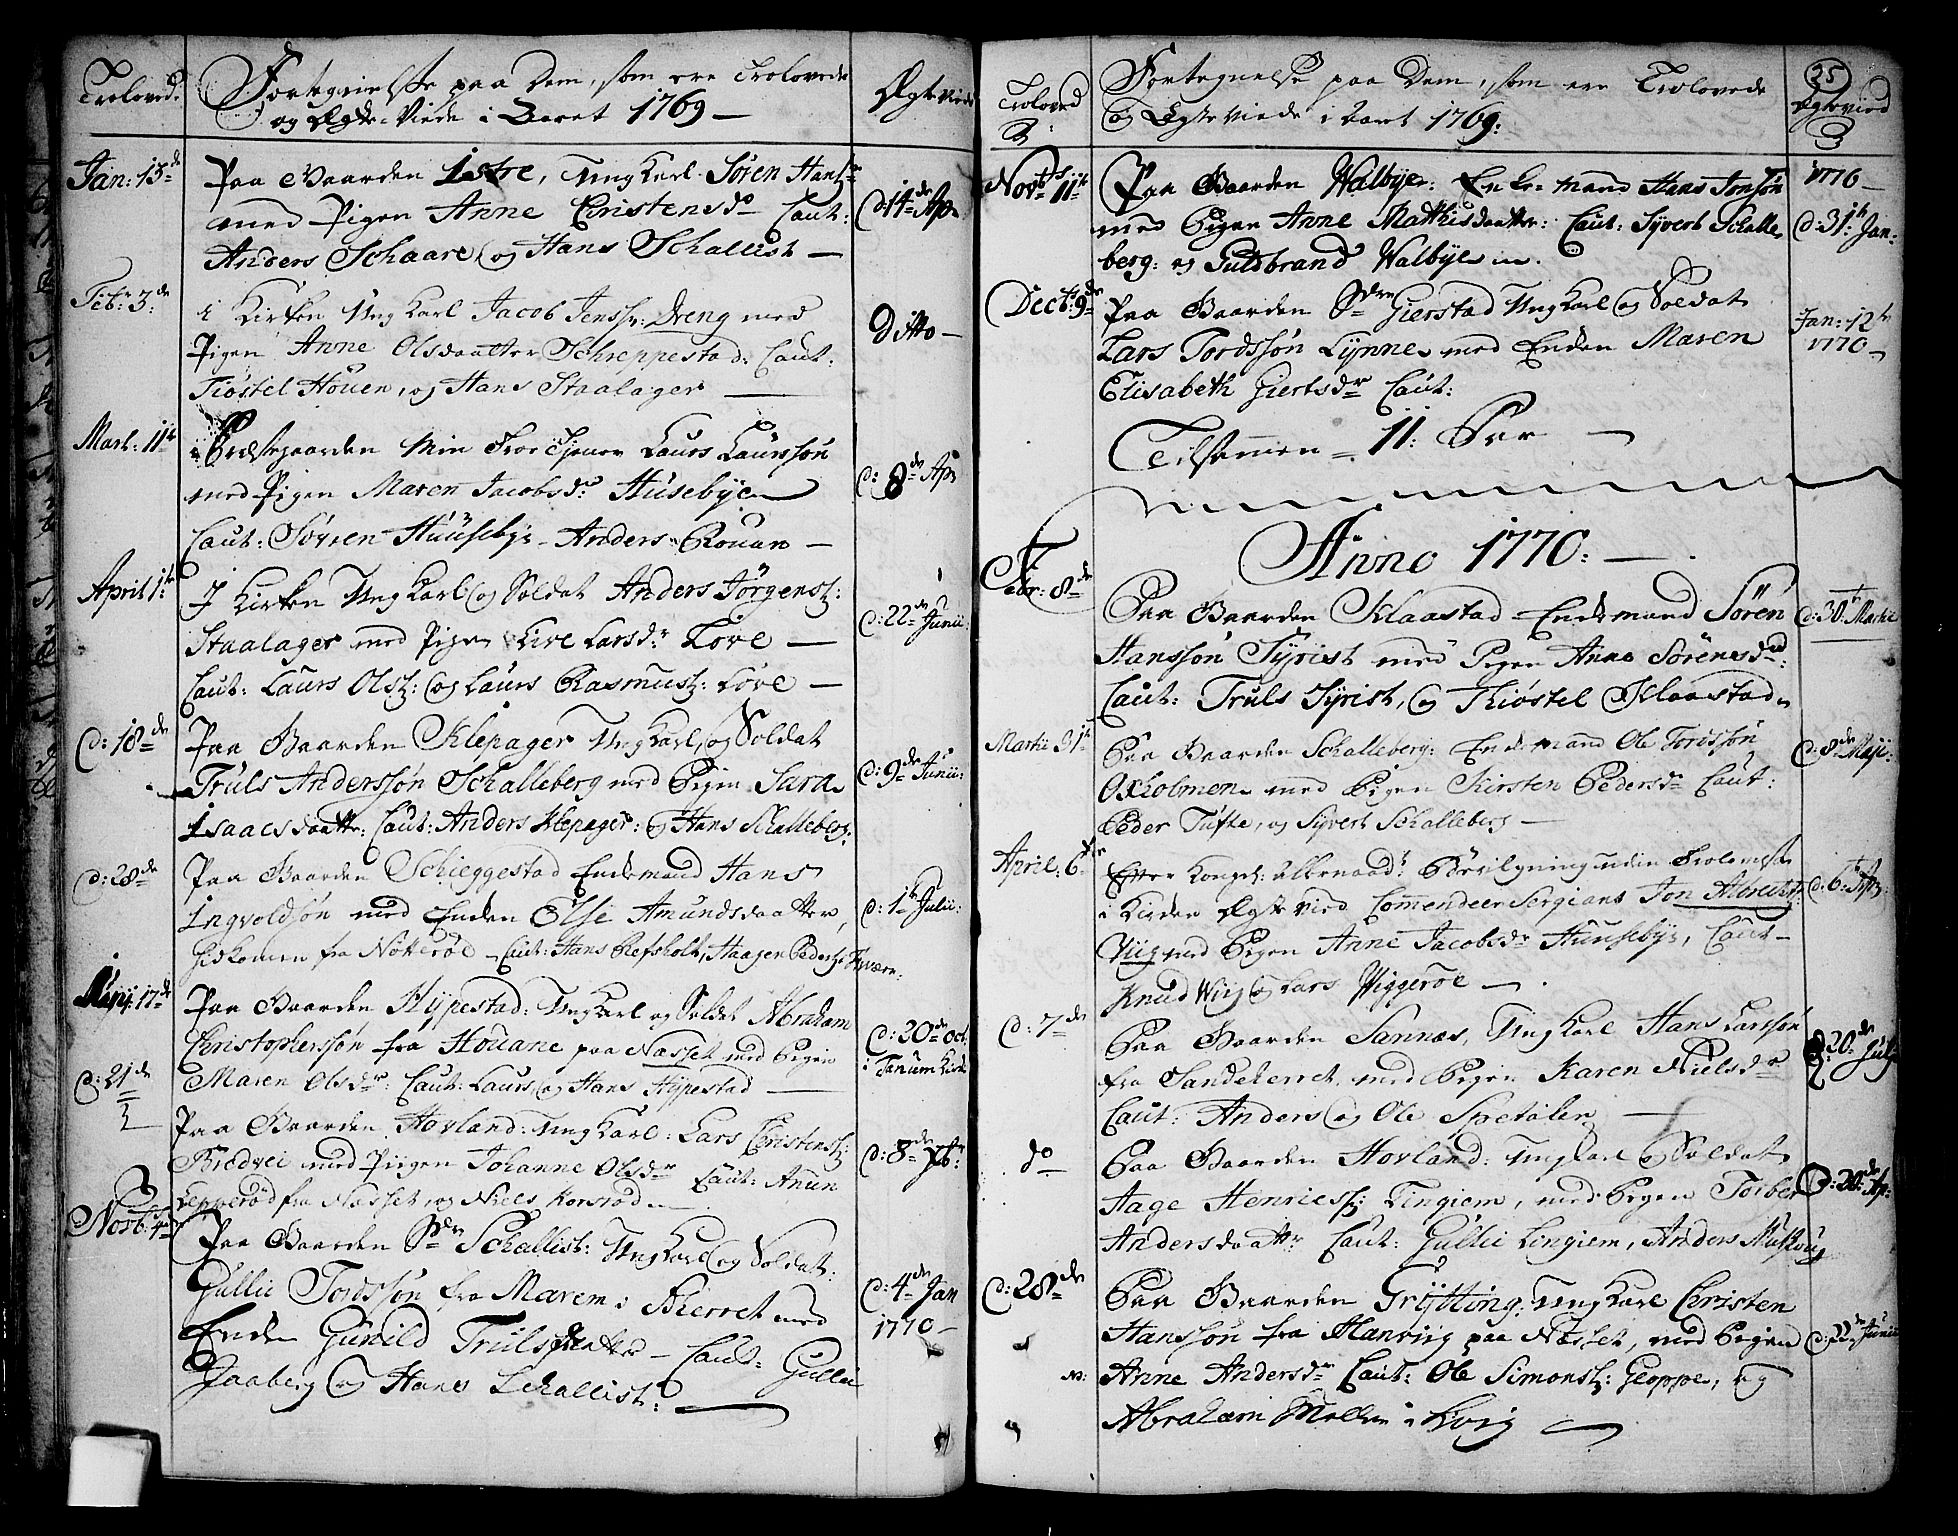 Troloved:
Fortegnelse paa Dem, som ere Trolovede
og Ægte-Viede i Aaret 1769 —
Ægtevied
Jan: 13de
Paa Gaarden Istre, Ung Karl Søren Hans
med Pigen Anne Christensdr Caut:
Anders Schaare, og Hans Schallist —
d: 14de Apr
Febr: 3de
i Kirken Ung Karl Jacob Jenss: Dreng med
Pigen Anne Olsdaatter Schreppestad: Caut:
Tiøstel Houen, og Hans Staalager —
Ditto —
Mart: 11te
i Præstegaarden Min Troe Tjener Laurs Laurssøn
med Pigen Maren Jacobsdr Husebye
Caut: Søvren Huuseby - Anders Rouan —
d: 8de Apr
April 1te
I Kirken Ung Karl og Soldat Anders Jørgens:
Staalager med Pigen Live Larsdr Løve —
Caut: Laurs Ols: og Laurs Rasmus: Løve —
d: 22de Junii:
d: 18de
Paa Gaarden Klepager Ung Karl, og Soldat
Truls Anderssøn Schalleberg med Pigen Sara
Isaacsdaatter: Caut: Anders Klepager: og Hans Schalleberg:
d: 9de Junii:
d: 28de
Paa Gaarden Schieggestad Enkemand Hans
Ingvoldsøn med Enken Else Amundsdaatter,
hidkomen fra Nøtterøe - Caut: Hans Refsholt, Haagen Peders
d: 1te Julii:
Maji: 17de
Paa Gaarden Hypestad: Ung Karl og Soldat Abraham
Christopherssøn fra Houane paa Næsset med Pigen
Maren Olsdr: Caut: Laurs og Hans Hypestad —
d: 20de Oct
i Tanum Kirke
d: 21de
Paa Gaarden Hovland: Ung Karl: Lars Christens:
Bredvei med Piigen Johanne Olsdr Caut: Anun
Lepperød fra Næsset, og Niels Korsrød —
d: 8de Xbr:
Novb: 4de
Paa Gaarden Sdre Schallist: Ung Karl og Soldat:
Gullic Tordssøn fra Marem i Kierret med
Enken Gunild Trulsdaatter — Caut: Gullic
Jaaberg og Hans Schallist: —
d: 4de Jan
1770 —
Trolovd
Fortegnelse paa Dem, som ere Trolovede
og Ægte Viede i Aaret 1769:
25
Ægtevied
Novb: 11te
Paa Gaarden Walbye: Enkemand Hans Jonsøn
med Pigen Anne Mathisdaatter: Caut: Syvert Schalle-
berg: og Guldbrand Walbye
1770 —
d: 31te Jan:
Decb: 9de
Paa Gaarden Sdre Gierstad Ung Karl og Soldat
Lars Tordssøn Lynne med Enken Maren
Elisabeth Giertsdr Caut:
Jan: 12te
1770 —
Tilsammen = 11: Par —
Anno 1770: —
Febr: 8de
Paa Gaarden Klaastad Enkemand Søren
Hanssøn Syrist med Pigen Anne Sørensdr:
Caut: Truls Syrist, og Tiøstel Klaastad
d: 30te Martii
Martii 31te
Paa Gaarden Schalleberg: Enkemand Ole Tordssøn
Oxholmen med Pigen Kirsten Pedersdr Caut:
Peder Tufte, og Syvert Schalleberg —
d: 8de Maji:
April: 6te
Efter Kongel: allernaad: Bevilgning uden Trolovelse
i Kirken Ægte Vied Commendeer Sergiant Jon Albrecht:
Viig med Pigen Anne Jacobsdr Huusebye, Caut —
Knud Wiig og Lars Wiggerøe —
d: 6te
d: 7de
Paa Gaarden Sannæs, Ung Karl Hans Larssøn
fra Sandeherret med Pigen Karen Nielsdr
Caut: Anders og Ole Spetalen —
d: 20de Julij
do
Paa Gaarden Hovland: Ung Karl og Soldat
Aage Henrics: Lingiem, med Pigen Torber
Andersdaatter Caut: Gullic Lingiem, Anders
d: 20de Ap:
d: 28de
Paa Gaarden Grytting: Ung Karl Christen
Hanssøn fra Hanviig paa Næsset, med Pigen
Anne Andersdr Caut: Ole Simons: Gloppe, og
Abraham
d: 22de Junii